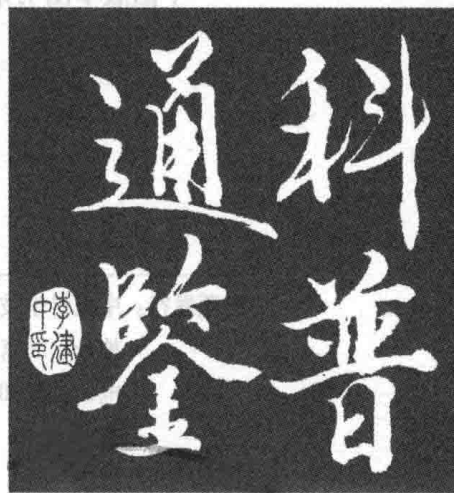 科普
通鑒
李建中印